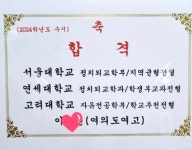 축
(2024학년도 수시)
합 격
서울대학교 정치외교학부/지역균형전형
연세대학교 정치외교학과/학생부교과전형
고려대학교 자유전공학부/학교추천전형
이 (여의도여고)